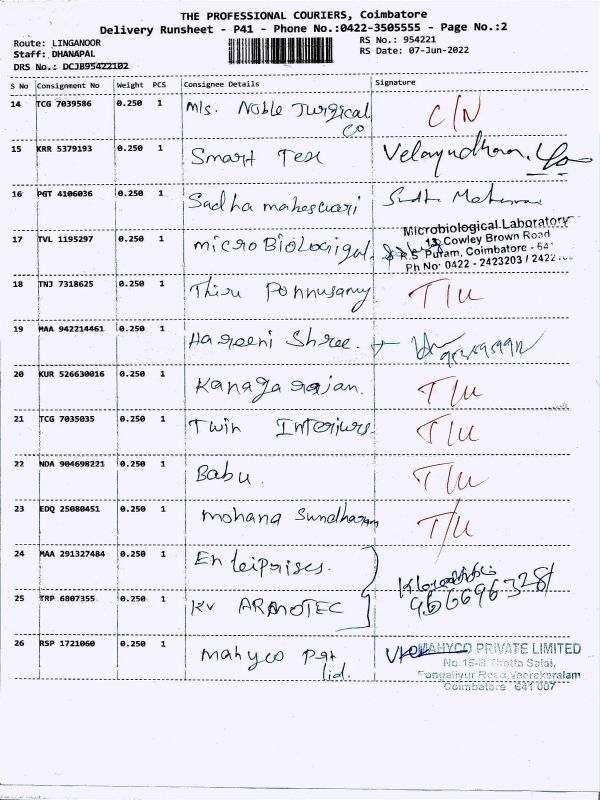 THE PROFESSIONAL COURIERS, Coimbatore
Delivery Runsheet - P41 - Phone No.:0422-3505555 - Page No.:2
Route: LINGANOOR RS No.: 954221
Staff: DHANAPAL RS Date: 07-Jun-2022
DRS No.: DCJB95422102
S No Consignment No Weight PCS Consignee Details Signature
14 TCG 7039586 0.250 1 M/s. Noble Surgical Co C/N
15 KRR 5379193 0.250 1 Smart Tex Velayudham.
16 PGT 4106036 0.250 1 Sadha maheswari
17 TVL 1195297 0.250 1 microBiological.
Microbiological Laboratory
13 Cowley Brown Road
R.S. Puram, Coimbatore - 641
Ph No: 0422 - 2423203 / 2422
18 TNJ 7318625 0.250 1 Thiru Ponnusamy T/U
19 MAA 942214461 0.250 1 Hareeni Shree.
20 KUR 526630016 0.250 1 Kanagarajan. T/U
21 TCG 7035035 0.250 1 Twin Interiurs. T/U
22 NDA 904698221 0.250 1 Babu. T/U
23 EDQ 25080451 0.250 1 mohana Sundharam T/U
24 MAA 291327484 0.250 1 Enterprises.
25 TRP 6807355 0.250 1 KV ARMOTEC
26 RSP 1721060 0.250 1 mahyco Pvt ltd.
MAHYCO PRIVATE LIMITED
No:15-B, Thotta Salai,
Pongaliyur Road, Veerakeralam
Coimbatore 641 007